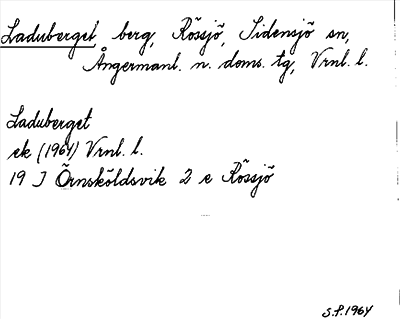 Laduberget, berg, Rössjö, Sidensjö sn,
Ångermanl. n. doms. tg, Vrnl. l.
Laduberget
ek (1964) Vrnl. l.
19 J Örnsköldsvik 2 e Rössjö
S.F. 1964